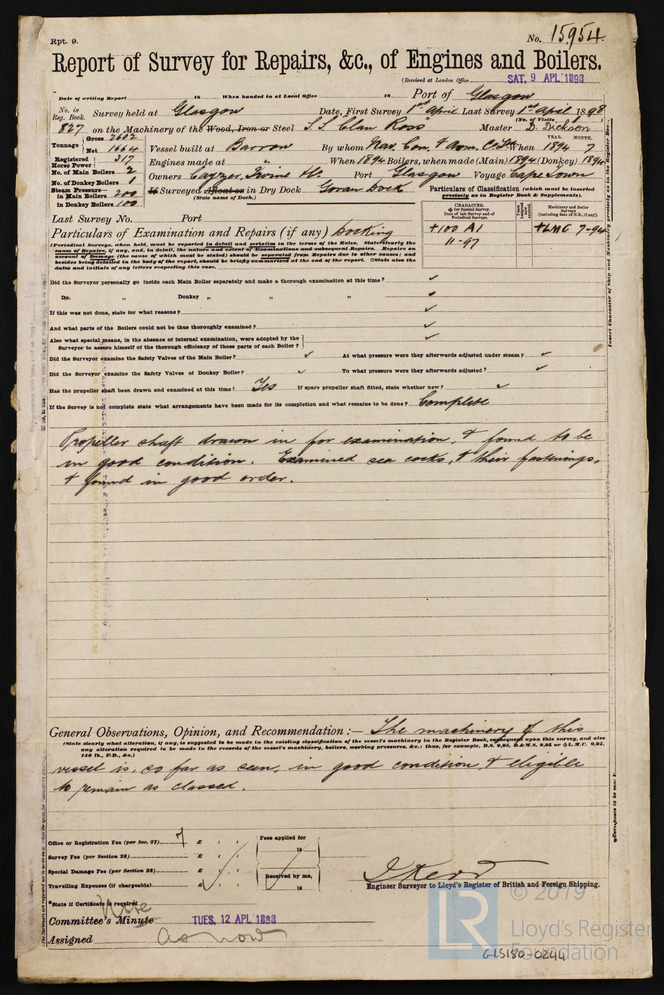 Rpt. 9.
No. 15954
Report of Survey for Repairs, &c., of Engines and Boilers.
(Received at London Office SAT. 9 APL 1898
Date of writing Report 18 When handed in at Local Office 18 Port of Glasgow
No. in Reg. Book. Survey held at Glasgow Date, First Survey 1st April Last Survey 1st April 1898
(No. of Visits
827 on the Machinery of the Wood, Iron or Steel S.S. Clan Ross Master D. Dickson
Tonnage Gross 2622 Net 1664 Vessel built at Barrow By whom Nav. Con. & Arm. Co Ld When 1894 7
YEAR. MONTH.
Registered Horse Power 317 Engines made at " When 1894 Boilers, when made (Main) 1894 (Donkey) 1894
No. of Main Boilers 2 Owners Cayzer, Irvine &c. Port Glasgow Voyage Cape Town
No. of Donkey Boilers 1
Steam Pressure in Main Boilers 200 If Surveyed Afloat or in Dry Dock Govan Dock
(State name of Dock.)
in Donkey Boilers 100
Particulars of Classification (which must be inserted precisely as in Register Book & Supplements).
Last Survey No. Port
CHARACTER. Machinery and Boiler Surveys
+100 A1 +LMC 7-94
11-97
Particulars of Examination and Repairs (if any) Docking
(Periodical Surveys, when held, must be reported in detail and seriatim in the terms of the Rules. State clearly the
cause of Repairs, if any, and, in detail, the nature and extent of Examinations and subsequent Repairs. Repairs on
account of Damage (the cause of which must be stated) should be separated from Repairs due to other causes; and
besides being detailed in the body of the report, should be briefly summarised at the end of the report. (State also the
dates and initials of any letters respecting this case.
Did the Surveyor personally go inside each Main Boiler separately and make a thorough examination at this time?
Do. " Donkey " " " "
If this was not done, state for what reasons?
And what parts of the Boilers could not be thus thoroughly examined?
Also what special means, in the absence of internal examination, were adopted by the
Surveyor to assure himself of the thorough efficiency of those parts of each Boiler?
Did the Surveyor examine the Safety Valves of the Main Boiler? At what pressure were they afterwards adjusted under steam?
Did the Surveyor examine the Safety Valves of Donkey Boiler? To what pressure were they afterwards adjusted?
Has the propeller shaft been drawn and examined at this time? Yes If spare propeller shaft fitted, state whether new?
If the Survey is not complete state what arrangements have been made for its completion and what remains to be done? Complete
Propeller shaft drawn in for examination, & found to be
in good condition. Examined sea cocks, & their fastenings,
& found in good order.
General Observations, Opinion, and Recommendation :— The machinery of this
(State clearly what alteration, if any, is suggested to be made in the existing classification of the vessel's machinery in the Register Book, consequent upon this survey, and also
any alteration required to be made in the records of the vessel's machinery, boilers, working pressures, &c.: thus, for example, B.S. 9,95, B.&M.S. 9,95 or L.M.C. 9,95,
140 lb., F.D., &c.)
vessel is, so far as seen, in good condition & eligible
to remain as classed.
Office or Registration Fee (per Sec. 27) £ : : Fees applied for
Survey Fee (per Section 28) £ : : 18
Special Damage Fee (per Section 28) £ : : Received by me,
Travelling Expenses (if chargeable) £ : : 18
Engineer Surveyor to Lloyd's Register of British and Foreign Shipping.
*State if Certificate is required
Committee's Minute TUES. 12 APL 1898
Assigned as now
© 2019
LR
Lloyd's Register
Foundation
GLS180-0244